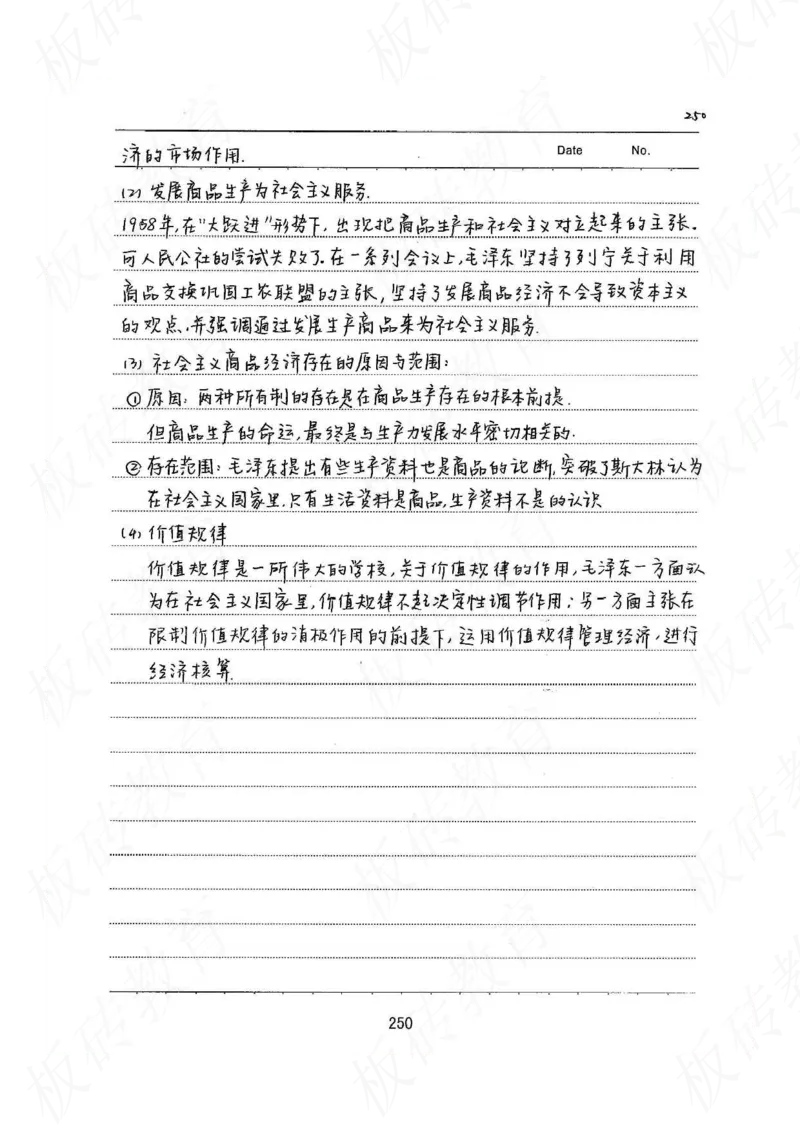 250
济的市场作用.
Date No.
(2) 发展商品生产为社会主义服务.
1958年,在"大跃进"形势下,出现把商品生产和社会主义对立起来的主张.
可人民公社的尝试失败了.在一系列会议上,毛泽东坚持了列宁关于利用
商品交换巩固工农联盟的主张,坚持了发展商品经济不会导致资本主义
的观点.并强调通过发展生产商品来为社会主义服务.
(3) 社会主义商品经济存在的原因与范围:
①原因:两种所有制的存在是在商品生产存在的根本前提.
但商品生产的命运,最终是与生产力发展水平密切相关的.
②存在范围:毛泽东提出有些生产资料也是商品的论断,突破了斯大林认为
在社会主义国家里,只有生活资料是商品,生产资料不是的认识
(4) 价值规律
价值规律是一所伟大的学校,关于价值规律的作用,毛泽东一方面认
为在社会主义国家里,价值规律不起决定性调节作用;另一方面主张在
限制价值规律的消极作用的前提下,运用价值规律管理经济,进行
经济核算.
250
板砖教育